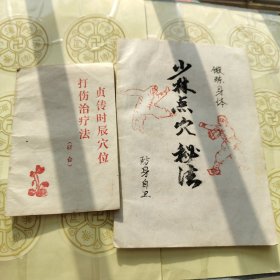 锻炼身体
少林点穴秘法
防身自卫
贞传时辰穴位
打伤治疗法